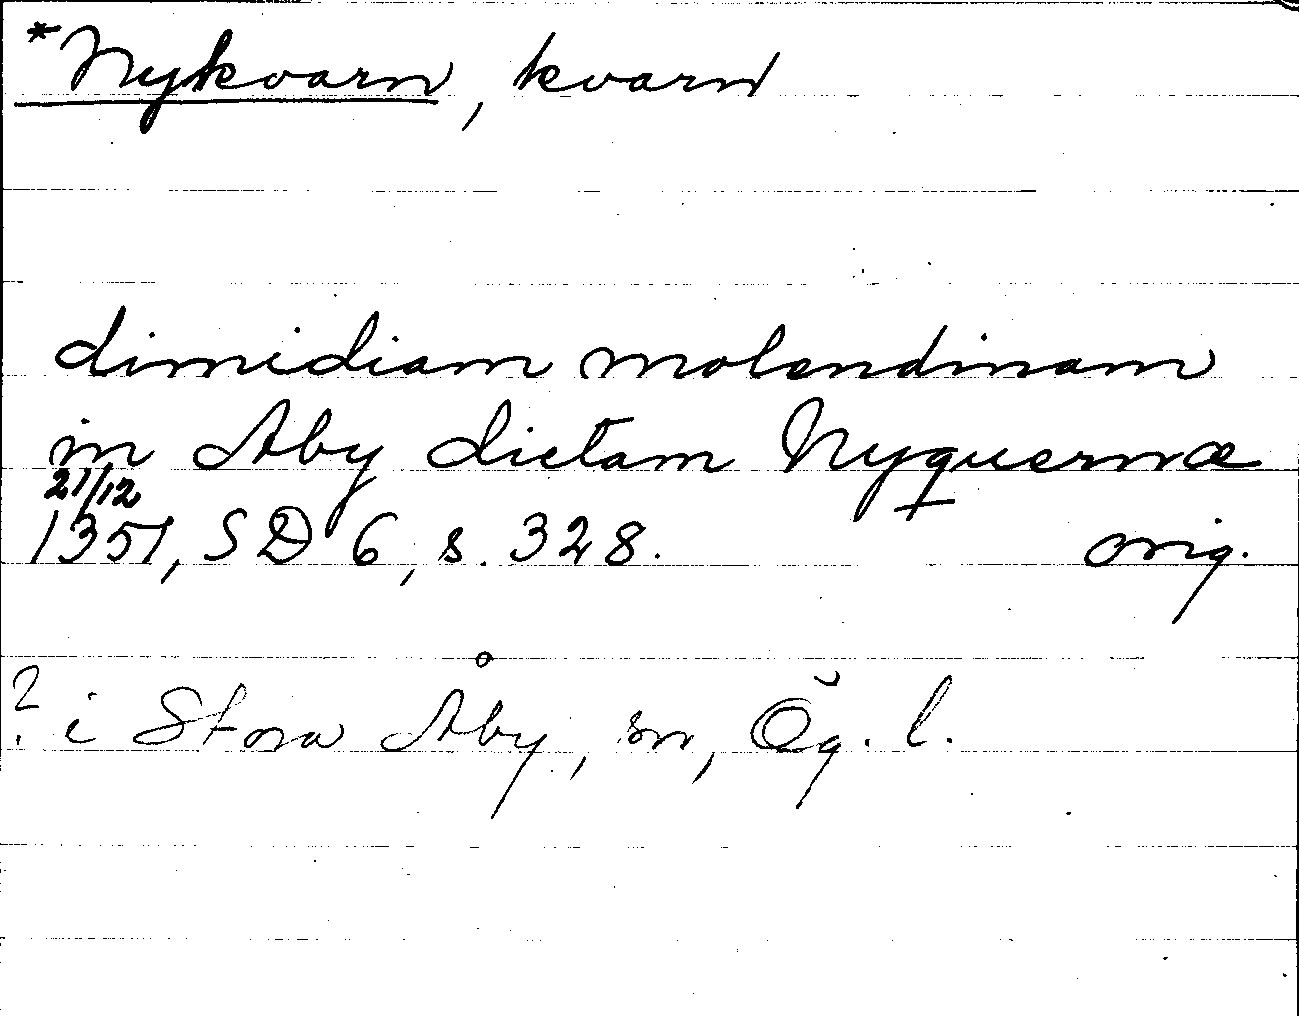 *Nykvarn, kvarn
dimidiam molendinam
in Aby dictam Nyquernæ
21/12
1351, SD 6, s. 328. orig.
? i Stora Åby, sn, Ög. l.